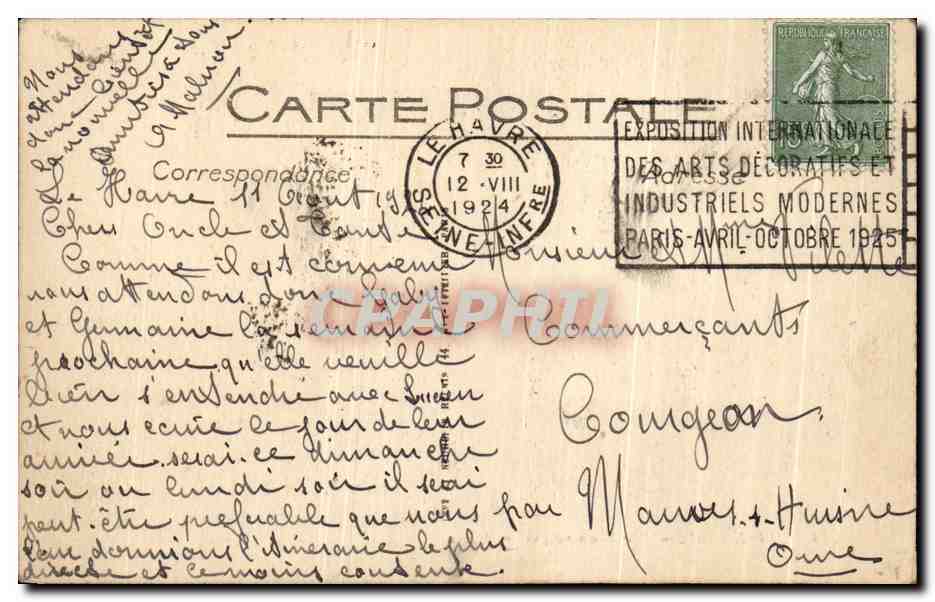 Nous
attendons
donc bientôt
la nouvelle
Amitiés à tous
A Malnou
CARTE POSTALE
REPUBLIQUE FRANÇAISE
15
LE HAVRE
7 30
12 - VIII
1924
SEINE-INFRE
EXPOSITION INTERNATIONALE
DES ARTS DÉCORATIFS ET
INDUSTRIELS MODERNES
PARIS-AVRIL-OCTOBRE 1925
Correspondance
Adresse
Le Havre 11 Aout 19
Chers Oncle et Tante
Comme il est convenu
nous attendons donc Gaby
et Germaine la semaine
prochaine qu'elle veuille
bien s'entendre avec Lucien
et nous écrire le jour de leur
arrivée serai-ce dimanche
soir ou lundi soir il serai
peut-être préférable que nous
leur donnions l'itinéraire le plus
directe et ce moins
Monsieur et Mme Pilette
Commerçants
Courgeon
par Mauves-s-Huisne
Orne
CPAPHIL